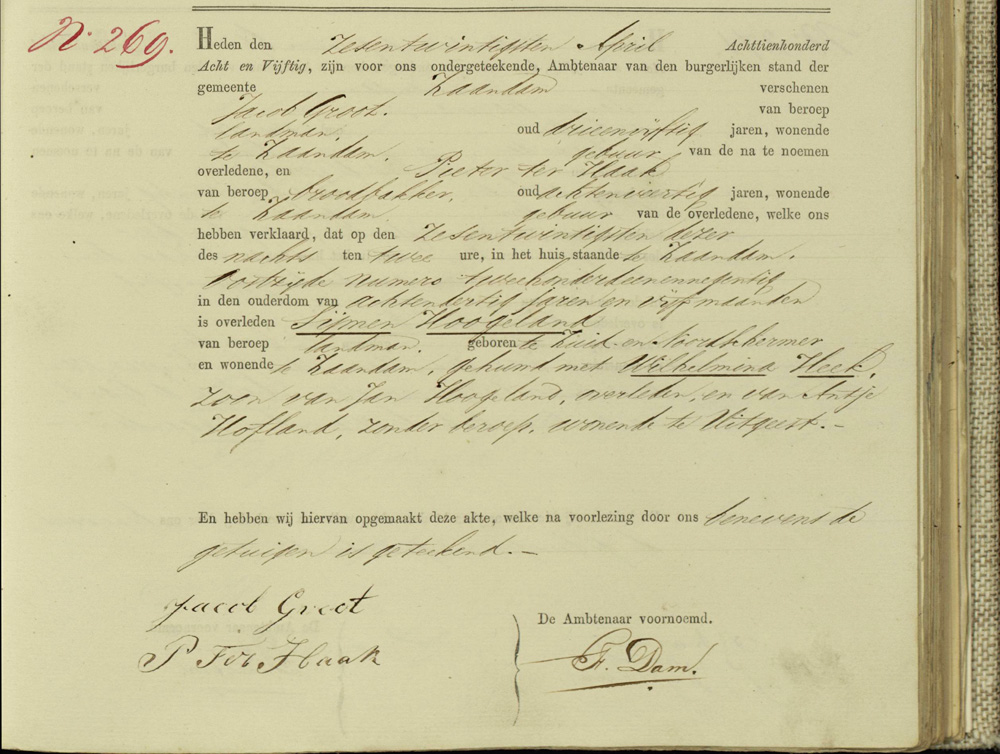 N. 269.
Heden den zesentwintigsten April Achttienhonderd
Acht en Vijftig, zijn voor ons ondergeteekende, Ambtenaar van den burgerlijken stand der
gemeente Zaandam verschenen
Jacob Groot. van beroep
landman oud drieenvijftig jaren, wonende
te Zaandam. gebuur van de na te noemen
overledene, en Pieter ter Haak
van beroep broodbakker, oud achtenveertig jaren, wonende
te Zaandam. gebuur van de overledene, welke ons
hebben verklaard, dat op den zesentwintigsten dezer
des nachts ten twee ure, in het huis staande te Zaandam.
Oostzijde numero tweehonderdeenennegentig
in den ouderdom van achtendertig jaren en vijf maanden
is overleden Sijmen Hoogeland
van beroep landman. geboren te Zuid en Noordschermer
en wonende te Zaandam, gehuwd met Wilhelmina Heek,
zoon van Jan Hoogeland, overleden, en van Antje
Hofland, zonder beroep, wonende te Uitgeest. –
En hebben wij hiervan opgemaakt deze akte, welke na voorlezing door ons benevens de
getuigen is geteekend. –
Jacob Groot
P Ter Haak
De Ambtenaar voornoemd.
F. Dam.